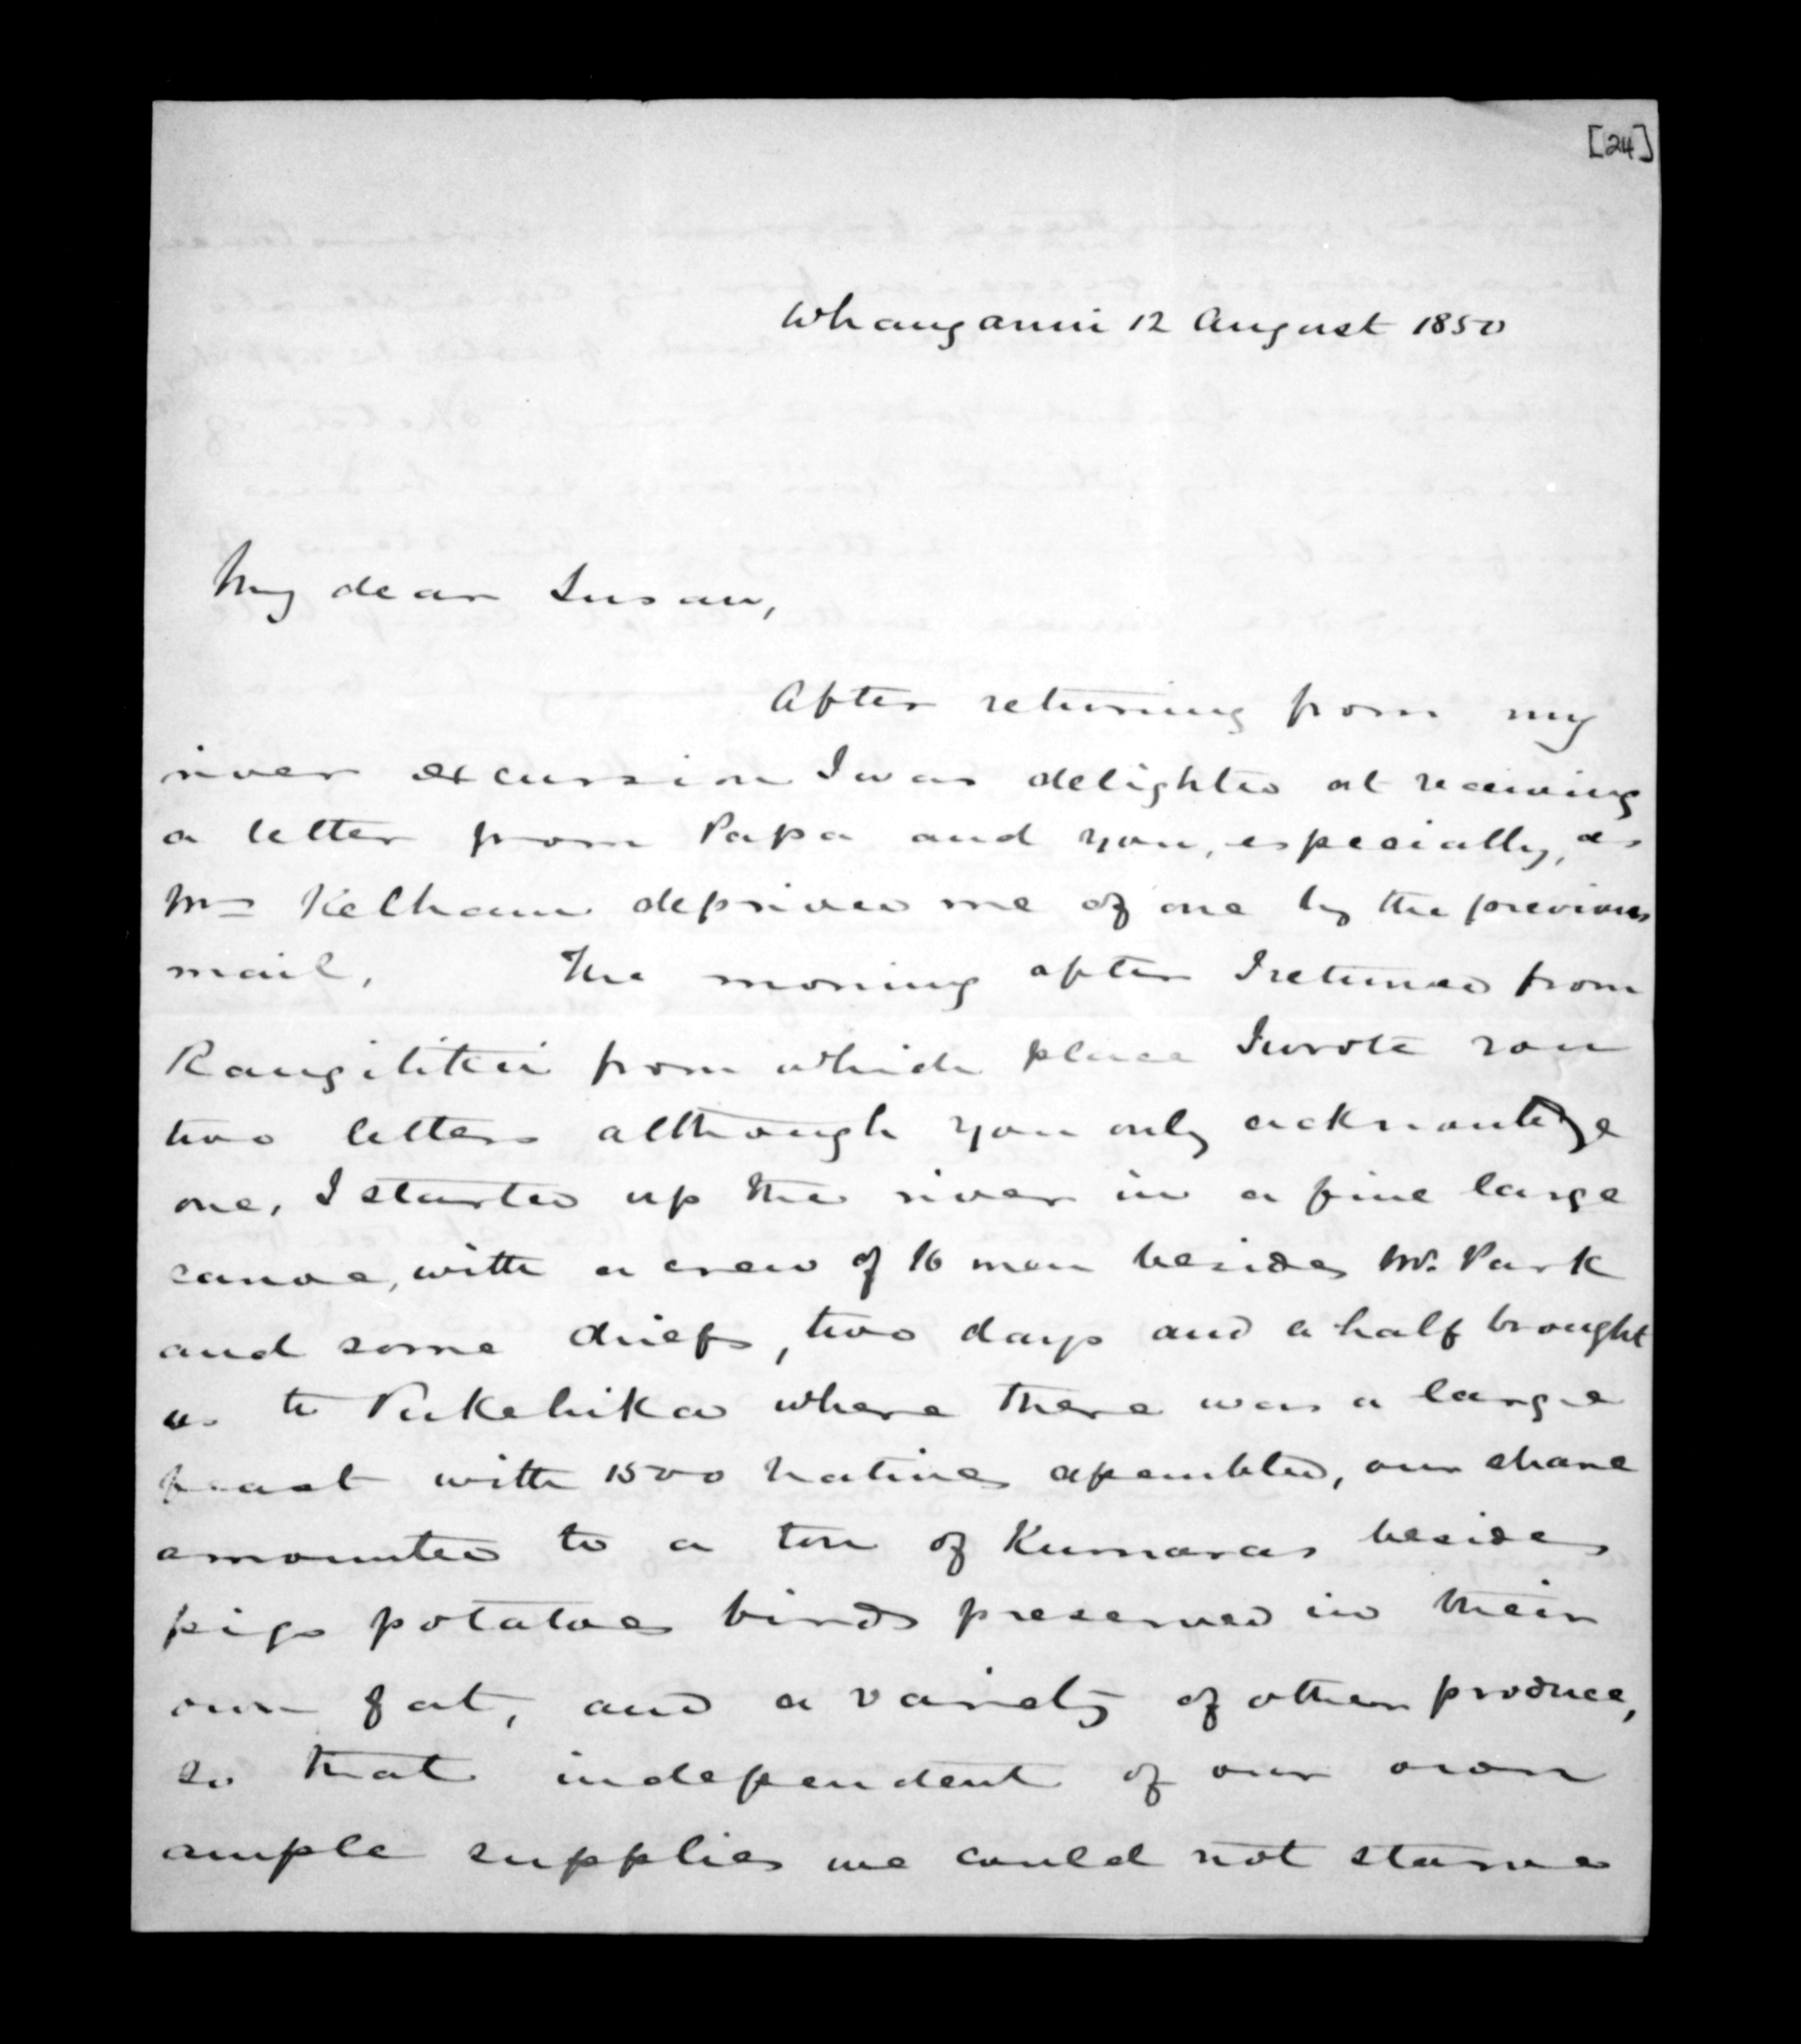 [24]
Whanganui 12 August 1850
My dear Susan,
After returning from my
river excursion I was delighted at receiving
a letter from Papa and you, especially, as
Mrs Kelham deprived me of one by the previous
mail. The morning after I returned from
Rangitikei from which place I wrote you
two letters although you only acknowledge
one, I started up the river in a fine large
canoe, with a crew of 16 men besides Mr. Park
and some chiefs, two days and a half brought
us to Pukehika where there was a large
feast with 1500 natives assembled, our share
amounted to a ton of Kumaras besides
pigs potatoes birds preserved in their
own fat, and a variety of other produce,
so that independent of our own
ample supplies we could not starve